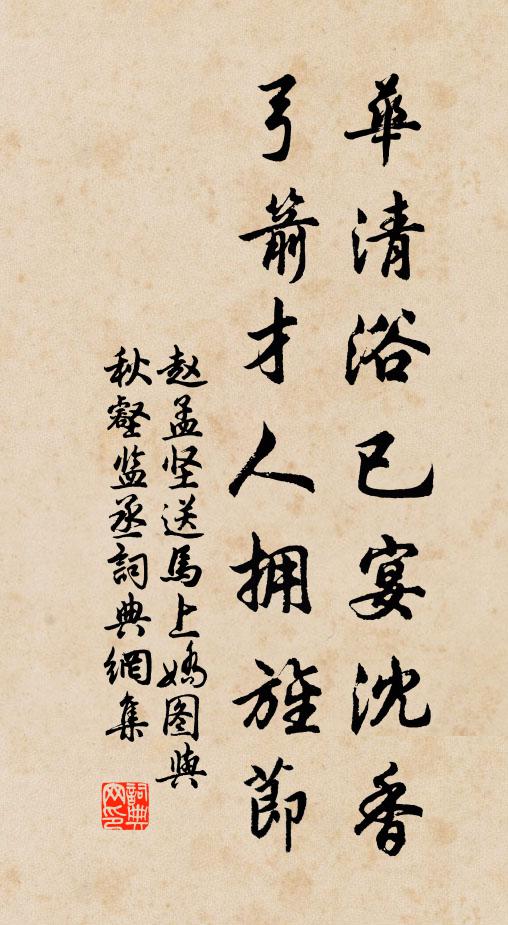 華清浴已宴沈香
弓箭才人拥旌節
赵孟坚送馬上嬌图與
秋壑监丞詞典網集
詞典网印